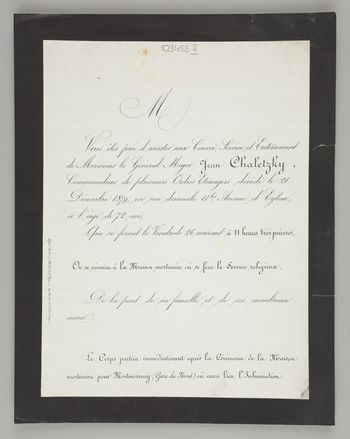 109453 II
M
Vous êtes prié d'assister aux Convoi, Service et Enterrement
de Monsieur le Général-Major Jean Chaletzky,
Commandeur de plusieurs Ordres Étrangers, décédé le 21
Décembre 1879, en son domicile 11 Avenue d'Eylau,
à l'âge de 72 ans,
Qui se feront le Vendredi 26 courant à 11 heures très précises.
On se réunira à la Maison mortuaire où se fera le Service religieux.
De la part de sa famille et de ses nombreux
amis
Le Corps partira immédiatement après la Cérémonie de la Maison
mortuaire pour Montmorency (Gare du Nord) où aura lieu l'Inhumation.